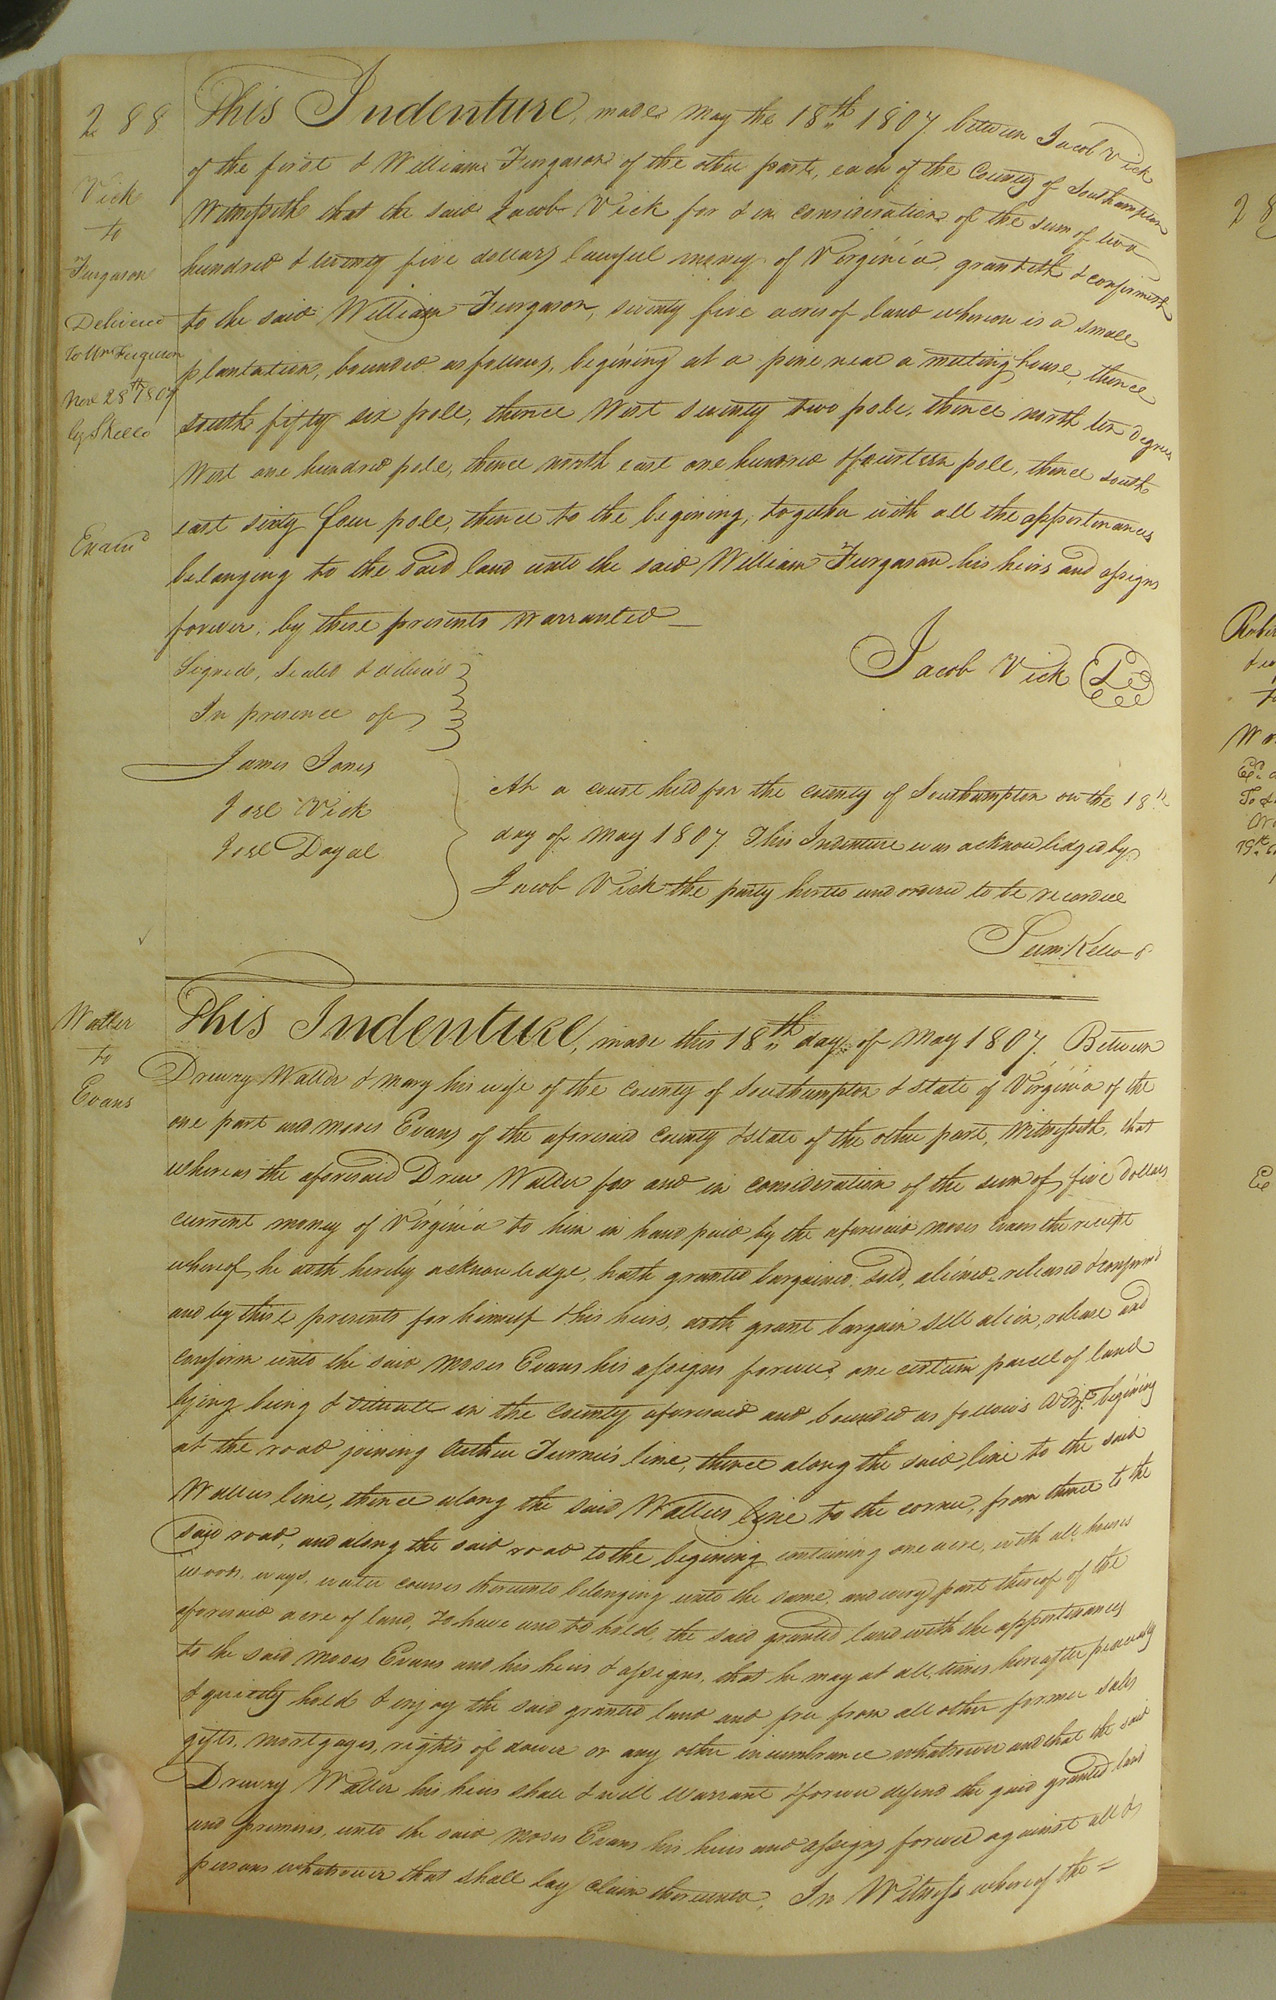 288
Vick
to
Furgason
Delivered
to Wm Ferguson
Nov 28th 1807
by S Kello
Exam'd
This Indenture, made May the 18th 1807 between Jacob Vick
of the first & William Furgason of the other part, each of the County of Southampton
Witnesseth that the said Jacob Vick for & in consideration of the sum of two
hundred & twenty five dollars lawful money of Virginia, granteth & confirmeth
to the said William Furgason, seventy five acres of land whereon is a small
plantation, bounded as follows, begining at a pine near a meeting house, thence
south fifty six pole, thence West seventy two pole, thence north ten degrees
West one hundred pole, thence north east one hundred & fourteen pole, thence south
east sixty four pole, thence to the begining, together with all the appertenances
belonging to the said land unto the said William Furgason his heirs and assigns
forever, by these presents warranted
Signed, Sealed & deliver'd
In presence of
Jacob Vick LS
James Jones
Joel Vick
Joel Doyal
At a court held for the county of Southampton on the 18th
day of May 1807 This Indenture was acknowledged by
Jacob Vick the party hereto and ordered to be recorded
Sam: Kello
Waller
to
Evans
This Indenture, made this 18th day of May 1807. Between
Drewry Waller & Mary his wife of the county of Southampton & state of Virginia of the
one part and Moses Evans of the aforesaid county & state of the other part, Witnesseth, that
whereas the aforesaid Drew Waller for and in consideration of the sum of five dollars
current money of Virginia to him in hand paid by the aforesaid Moses Evans the receipt
whereof he doth hereby acknowledge, hath granted bargained, sold, aliened, released & confirmd
and by these presents for himself & his heirs, doth grant bargain sell alien, release and
confirm unto the said Moses Evans his assigns forever one certain parcel of land
lying being & situate in the county aforesaid and bounded as follows Viz. begining
at the road joining Arthur Turner's line, thence along the said line to the said
Wallers line, thence along the said Wallers line to the corner, from thence to the
said road, and along the said road to the begining containing one acre, with all houses
woods, ways, water courses thereunto belonging unto the same, and every part thereof of the
aforesaid acre of land, To have and to hold, the said granted land with the appertenances
to the said Moses Evans and his heirs & assigns, that he may at all times hereafter peaceably
& quietly hold & enjoy the said granted land and free from all other former sales
gifts, mortgages, rights of dower or any other incumbrance whatsoever and that the said
Drewry Waller his heirs shall & will warrant & forever defend the said granted land
and premises, unto the said Moses Evans his heirs and assigns forever against all &
persons whatsoever that shall lay claim thereunto, In Witness whereof the =